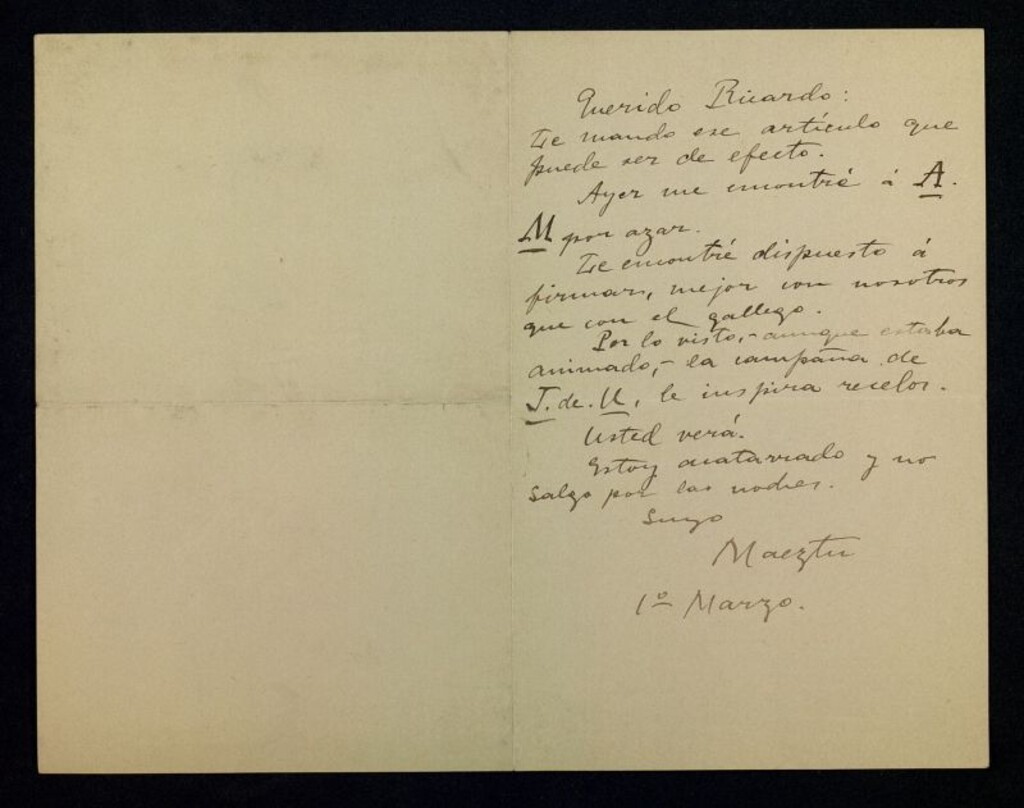 Querido Ricardo:
Le mando ese artículo que
puede ser de efecto.
Ayer me encontré á A.
M por azar.
Le encontré dispuesto á
firmar, mejor con nosotros
que con el gallego.
Por lo visto,-aunque estaba
animado,- la campaña de
J. de. U, le inspira recelos.
Usted verá.
Estoy acatarrado y no
salgo por las noches.
Suyo
Maeztu
1º Marzo.